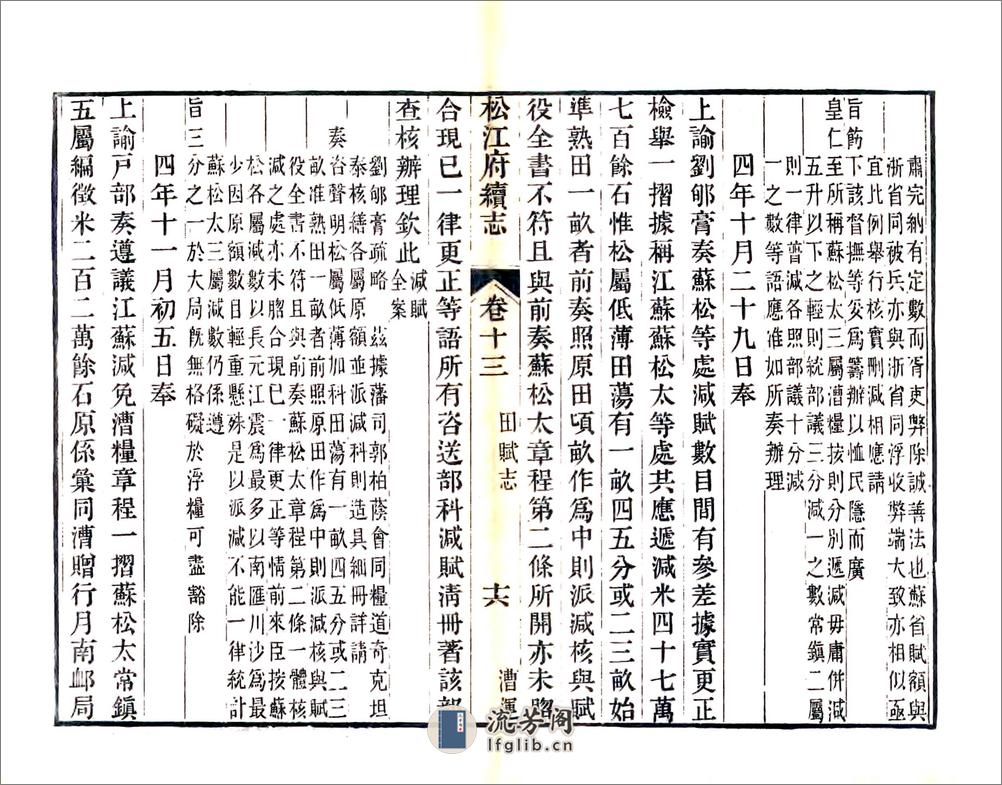 肅完納有定數而胥吏弊除誠善法也蘇省賦額與
浙省同被兵亦與浙省同浮收弊端大致亦相似亟
宜比例舉行核實刪減相應請
旨飭下該督撫等妥爲籌辦以恤民隱而廣
皇仁至所稱蘇松太三屬漕糧按則分別遞減毋庸併減
五升以下之輕則統部議三分減一之數常鎮二屬
則一律普減各照部議十分減
一之數等語應准如所奏辦理
四年十月二十九日奉
上諭劉郇膏奏蘇松等處減賦數目間有參差據實更正
檢舉一摺據稱江蘇蘇松太等處共應遞減米四十七萬
七百餘石惟松屬低薄田蕩有一畝四五分或二三畝始
準熟田一畝者前奏照原田頃畝作爲中則派減核與賦
役全書不符且與前奏蘇松太章程第二條所開亦未脗
合現已一律更正等語所有咨送部科減賦淸冊著該部
查核辦理欽此減賦全案
劉郇膏疏略 茲據藩司郭柏蔭會同糧道奇克坦
泰核繕各屬原額並派減科則造具細冊詳請
奏咨聲明松屬低薄加科田蕩有一畝四五分或二三
畝准熟田一畝者前照原田作爲中則派減核與賦
役全書不符且與前奏蘇松太章程第二條一體核
減之處亦未脗合現已一律更正等情前來臣按蘇
松各屬減數以長元江震爲最多以南匯川沙爲最
少因原額數目輕重懸殊是以派減不能一律統計
蘇松太三屬減數仍係遵
旨三分之一於大局旣無格礙於浮糧可盡豁除
四年十一月初五日奉
上諭戸部奏遵議江蘇減免漕糧章程一摺蘇松太常鎮
五屬編徵米二百二萬餘石原係彙同漕贈行月南卹局
松江府續志
卷十三
田賦志
漕運
十六
流芳阁
lfglib.cn